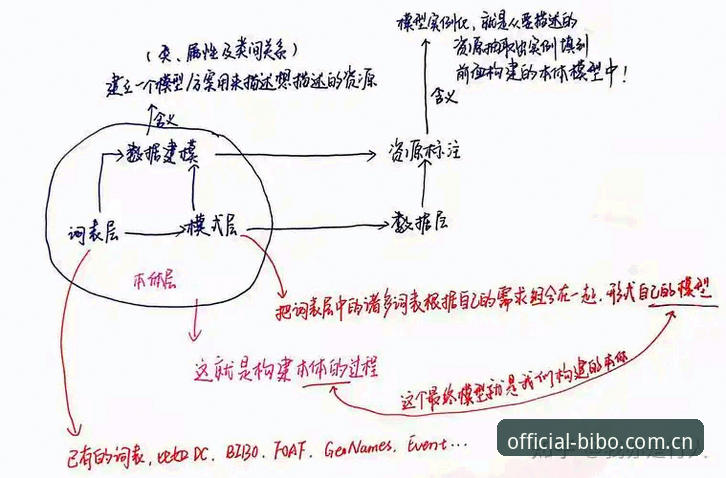 模型实例化，就是从要描述的
资源抽取出实例填到
前面构建的本体模型中！
（类、属性及类间关系）
建立一个模型/方案用来描述想描述的资源
含义
含义
数据建模
资源标注
词表层
模式层
数据层
本体层
把词表层中的诸多词表根据自己的需求组合在一起，形式自己的模型
这就是构建本体的过程
这个最终模型就是我们构建的本体
已有的词表，比如DC、BIBO、FOAF、GeoNames、Event...
official-bibo.com.cn